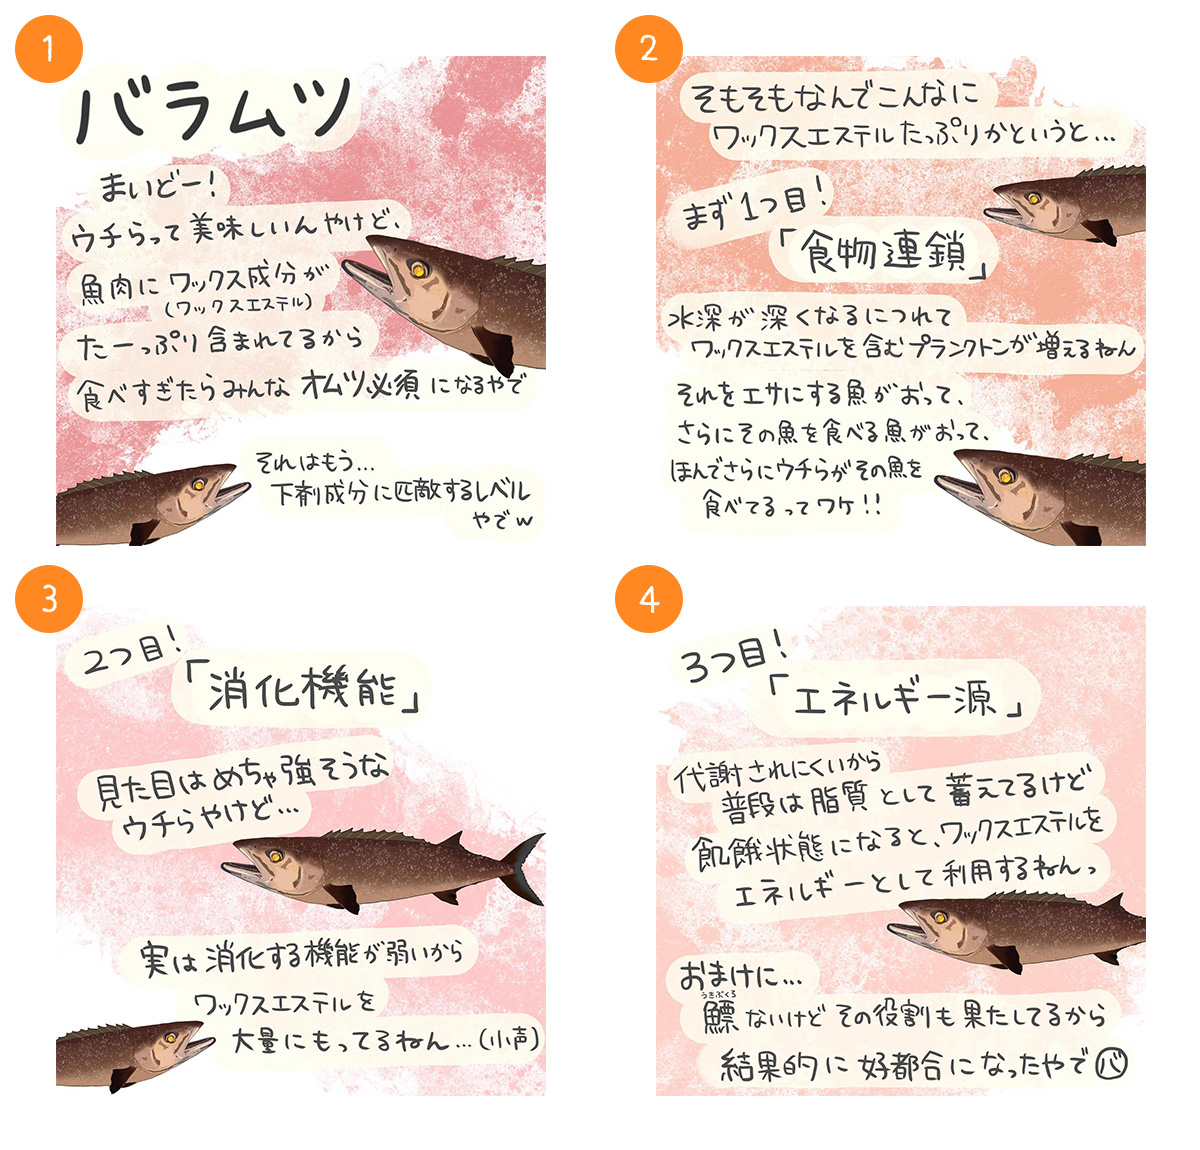 1
バラムツ
まいどー!
ウチらって美味しいんやけど、
魚肉にワックス成分が
(ワックスエステル)
たーっぷり含まれてるから
食べすぎたらみんなオムツ必須になるやで
それはもう...
下剤成分に匹敵するレベル
やでw
2
そもそもなんでこんなに
ワックスエステルたっぷりかというと...
まず1つ目!
「食物連鎖」
水深が深くなるにつれて
ワックスエステルを含むプランクトンが増えるねん
それをエサにする魚がおって、
さらにその魚を食べる魚がおって、
ほんでさらにウチらがその魚を
食べてるってワケ!!
3
2つ目!
「消化機能」
見た目はめちゃ強そうな
ウチらやけど...
実は消化する機能が弱いから
ワックスエステルを
大量にもってるねん...(小声)
4
3つ目!
「エネルギー源」
代謝されにくいから
普段は脂質として蓄えてるけど
飢餓状態になると、ワックスエステルを
エネルギーとして利用するねんっ
おまけに...
うきぶくろ
鰾ないけどその役割も果たしてるから
結果的に好都合になったやで(バ)